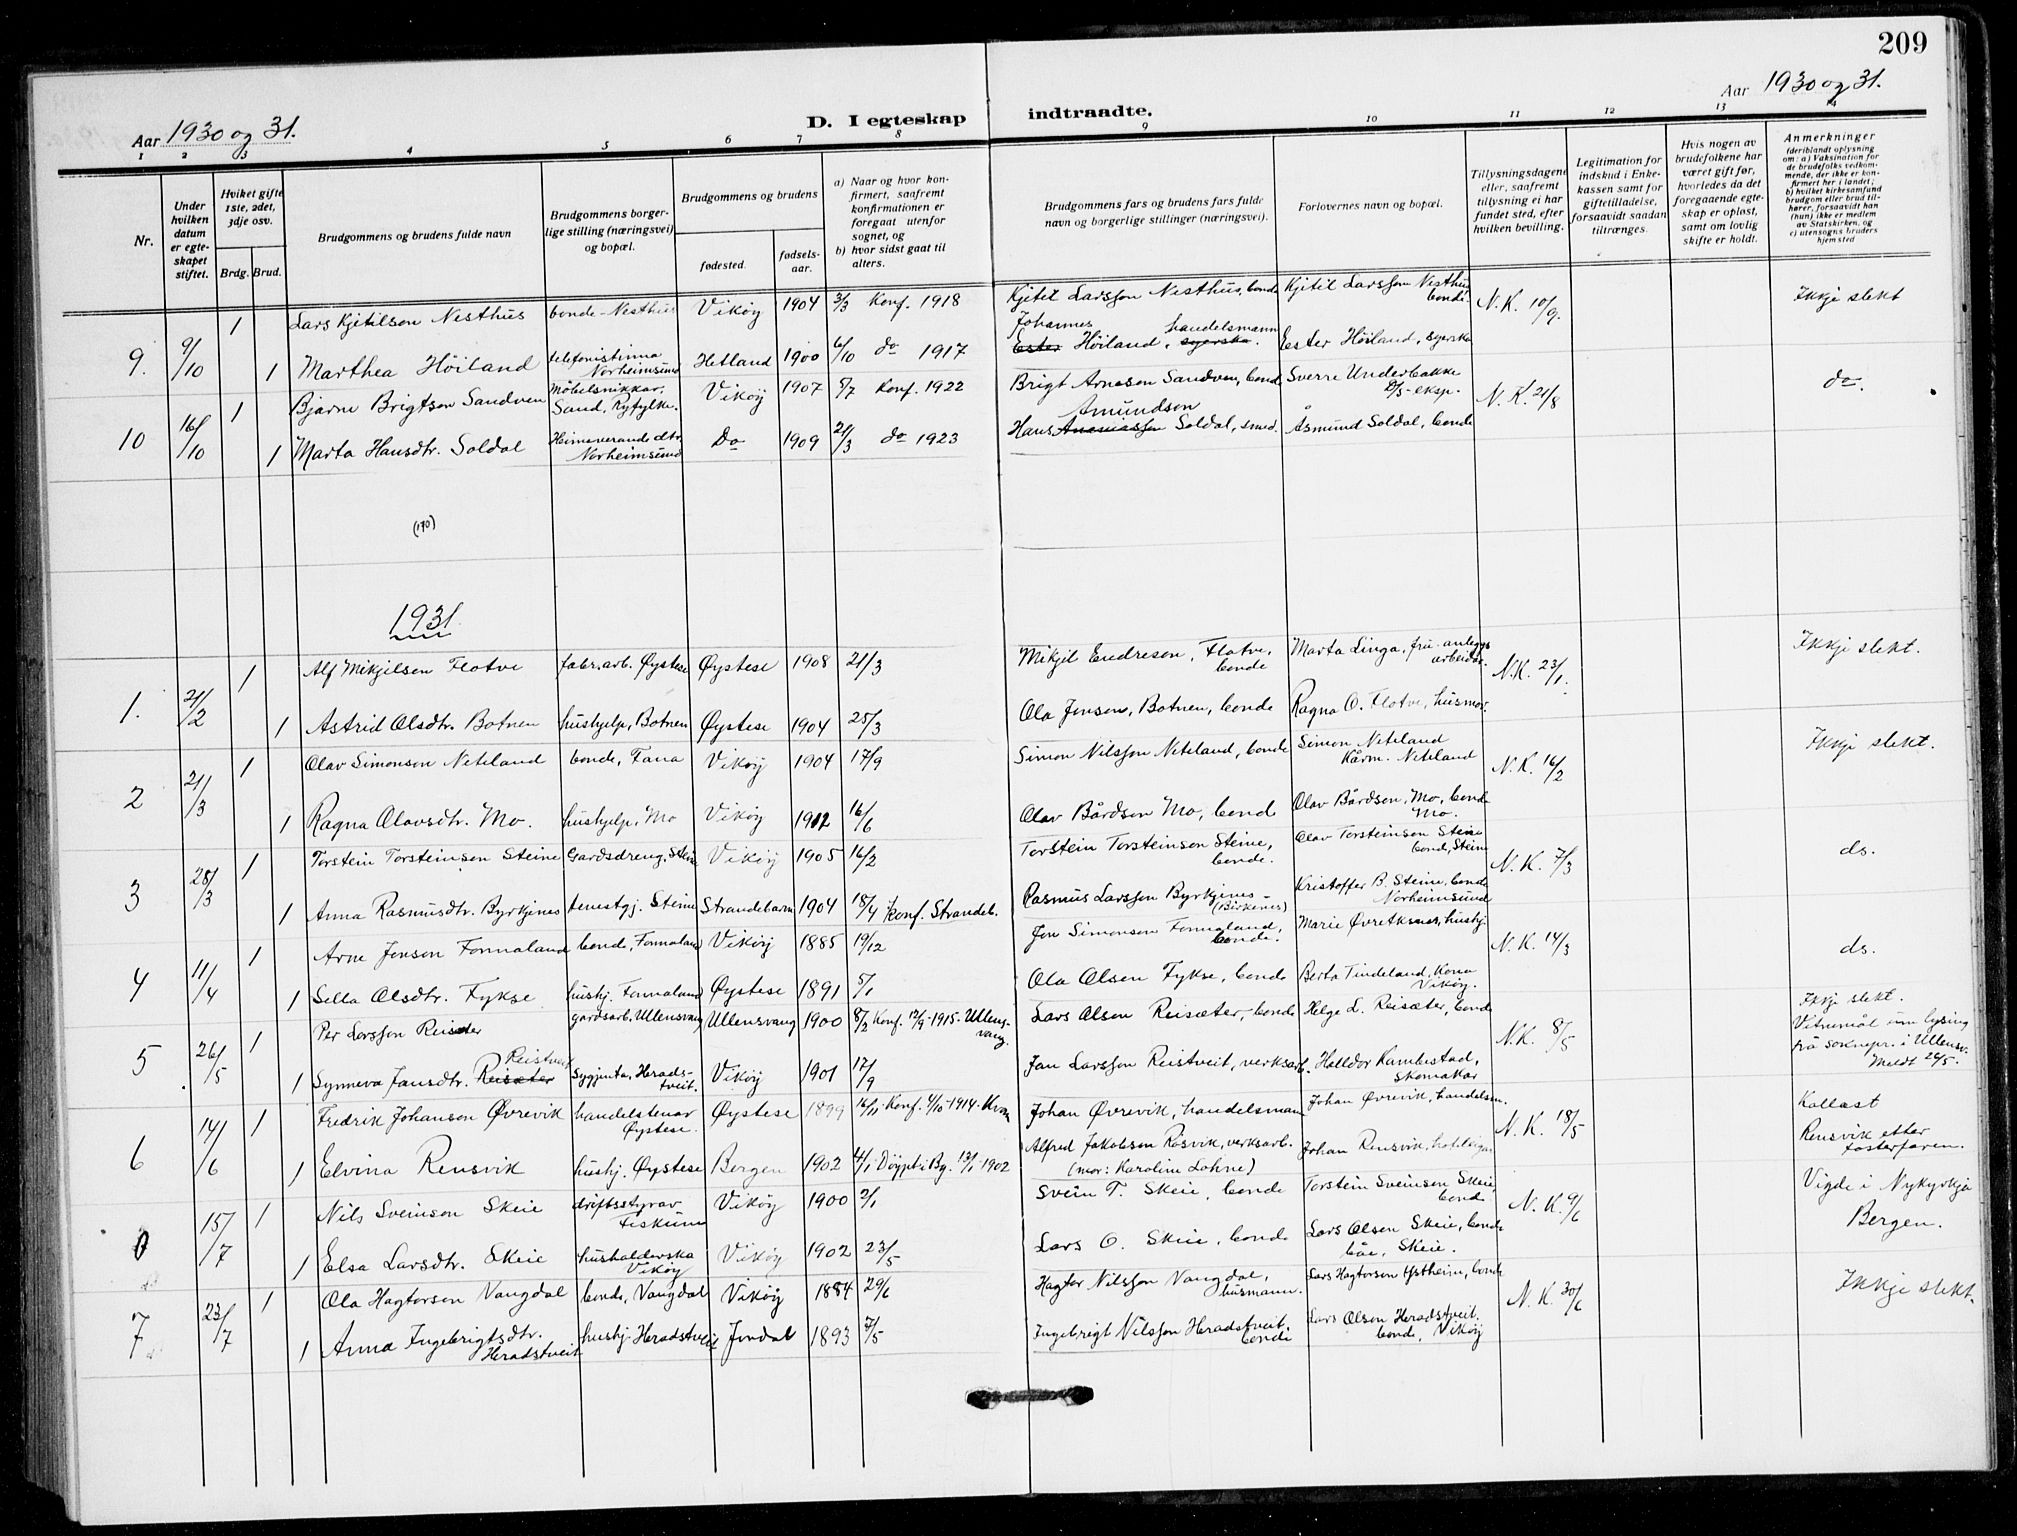 209
Aar 1930 og 31.
D. I egteskap indtraadte.
Aar 1930 og 31.
1 2 3 4 5 6 7 8 9 10 11 12 13 14
Nr.
Under hvilken datum er egteskapet stiftet.
Hviket gifte 1ste, 2det, 3dje osv.
Brdg. Brud.
Brudgommens og brudens fulde navn
Brudgommens borgerlige stilling (næringsvei) og bopæl.
Brudgommens og brudens
fødested.
fødselsaar.
a) Naar og hvor konfirmert, saafremt konfirmationen er foregaat utenfor sognet, og
b) hvor sidst gaat til alters.
Brudgommens fars og brudens fars fulde navn og borgerlige stillinger (næringsvei).
Forlovernes navn og bopæl.
Tillysningsdagene eller, saafremt tillysning ei har fundet sted, efter hvilken bevilling.
Legitimation for indskud i Enkekassen samt for giftetilladelse, forsaavidt saadan tiltrænges.
Hvis nogen av brudefolkene har været gift før, hvorledes da det foregaaende egteskap er opløst, samt om lovlig skifte er holdt.
Anmerkninger (deriblandt oplysning om: a) Vaksination for de brudefolks vedkommende, der ikke er konfirmert her i landet; b) hvilket kirkesamfund brudgom eller brud tilhører, forsaavidt han (hun) ikke er medlem av Statskirken, og c) utensogns bruders hjemsted
9. 9/10 1 Lars Kjetilson Nesthus bonde - Nesthus Vikøy 1904 3/3 Konf. 1918 Kjetil Larsson Nesthus, bonde Kjetil Larsson Nesthus bonde. N.K. 10/9. Ikkje slekt
1 Marthea Höiland telefonistinna Norheimsund Hetland 1900 6/10 do 1917 Johannes Ester Höiland, handelsmann syerska. Ester Höiland, syerska
10 16/10 1 Bjarne Brigtson Sandven Möbelsnikkar, Sand, Ryfylke. Vikøy 1907 5/7 Konf. 1922 Brigt Arneson Sandven, bonde Sverre Underbakke D/S-eksp. N.K. 21/8 do.
1 Marta Hansdtr. Soldal Heimeverande dtr. Norheimsund Do 1909 21/3 do 1923 Hans Amundson Soldal, smed. Åsmund Soldal, bonde
(170)
1931.
1. 21/2 1 Alf Mikjelsen Flotve fabr.arb. Øystese Øystese 1908 21/3 Mikjel Endreson, Flotve, bonde Marta Linga, fru-anleggsarbeidar. N.K. 23/1. Ikkje slekt.
1 Astrid Olsdtr. Botnen hushjelp, Botnen Øystese 1904 25/3 Ola Jenson, Botnen, bonde Ragna O. Flotve, husmor.
2 21/3 1 Olav Simonson Neteland bonde, Fana Vikøy 1904 17/9 Simon Nilsson Neteland, bonde Simon Neteland Kårm. Neteland N.K. 16/2 Ikkje slekt.
1 Ragna Olavsdtr. Mo. hushjelp, Mo Vikøy 1912 16/6 Olav Bårdson Mo, bonde Olav Bårdson, Mo, bonde Mo.
3 28/3 1 Torstein Torsteinson Steine Gardsdreng, Steine Vikøy 1905 16/2 Torstein Torsteinson Steine, bonde. Olav Torsteinson Steine bonde, Steine N.K. 7/3 ds.
1 Anna Rasmusdtr. Byrkjenes tenestgj. Steine Strandebarm 1904 18/4 konf. Strandeb. Rasmus Larsson Byrkjenes - (Birkenes) Kristoffer B. Steine, bonde Norheimsund
4 11/4 1 Arne Jonson Fonnaland bonde, Fonnaland Vikøy 1885 19/12 Jon Simonson Fonnaland, bonde. Marie Øvretksnes, hushj. N.K. 14/3 ds.
1 Sella Olsdtr. Fykse hushj. Fonnaland Øystese 1891 5/1 Ola Olsen Fykse, bonde Berta Tindeland, Kona Vikøy.
5 26/5 1 Per Larsson Reisæter gardsarb. Ullensvang Ullensvang 1900 8/2 Konf. 12/9-1915-Ullensvang. Lars Olsen Reisæter, bonde Helge L. Reisæter, bonde N.K. 8/5 Ikkje slekt. Vitnemål um lysing frå soknepr. i Ullensv. Meldt 26/5.
1 Synneva Jansdtr. Reistveit Reisæter Sygjenta, Heradstveit. Vikøy 1901 17/9 Jan Larsson Reistveit, verksarb. Halldor Kambestad, Skomakar
6 14/6 1 Fredrik Johanson Øvrevik handelstenar Øystese. Øystese 1899 16/11 Konf. 4/10-1914-Kvam Johan Øvrevik, handelsmann Johan Øvrevik, handelsm. N.K. 18/5 Kallast Rensvik etter fosterfaren.
1 Elvina Rensvik hushj. Øystese Bergen 1902 4/1 Döypt i Bg. 13/1-1902 Alfred Jakobson Røsvik, verksarb. (mor: Karoline Lohne) Johan Rensvik, hoteleigar
15/7 1 Nils Sveinson Skeie driftsstyrar Fiskum Vikøy 1900 2/1 Svein T. Skeie, bonde Torstein Sveinson Skeie, bonde N.K. 9/6 Vigde i Nykyrkja Bergen.
1 Elsa Larsdtr. Skeie husholderska Vikøy Vikøy 1902 23/5 Lars O. Skeie, bonde Lars Olsen Skeie, bonde båe, Skeie.
7 23/7 1 Ola Hagtorson Vangdal bonde, Vangdal Vikøy 1884 29/6 Hagtor Nilsson Vangdal, husmann. Lars Hagtorson Ystheim, bonde N.K. 30/6 Ikkje slekt.
1 Anna Ingebrigtsdtr. Heradstveit hushj. Heradstveit Jondal 1893 7/5 Ingebrigt Nilsson Heradstveit. bonde Lars Olsen Heradstveit. bonde, Vikøy